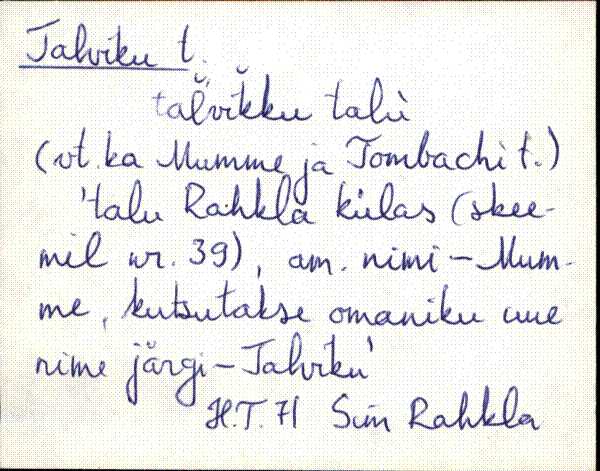 Talviku t.
talvikku talu
(vt. ka Mumme ja Tombachi t.)
'talu Rahkla külas (skee-
mil nr. 39), am. nimi - Mum-
me, kutsutakse omaniku uue
nime järgi - Talviku'
H.T. 71 Sim Rahkla